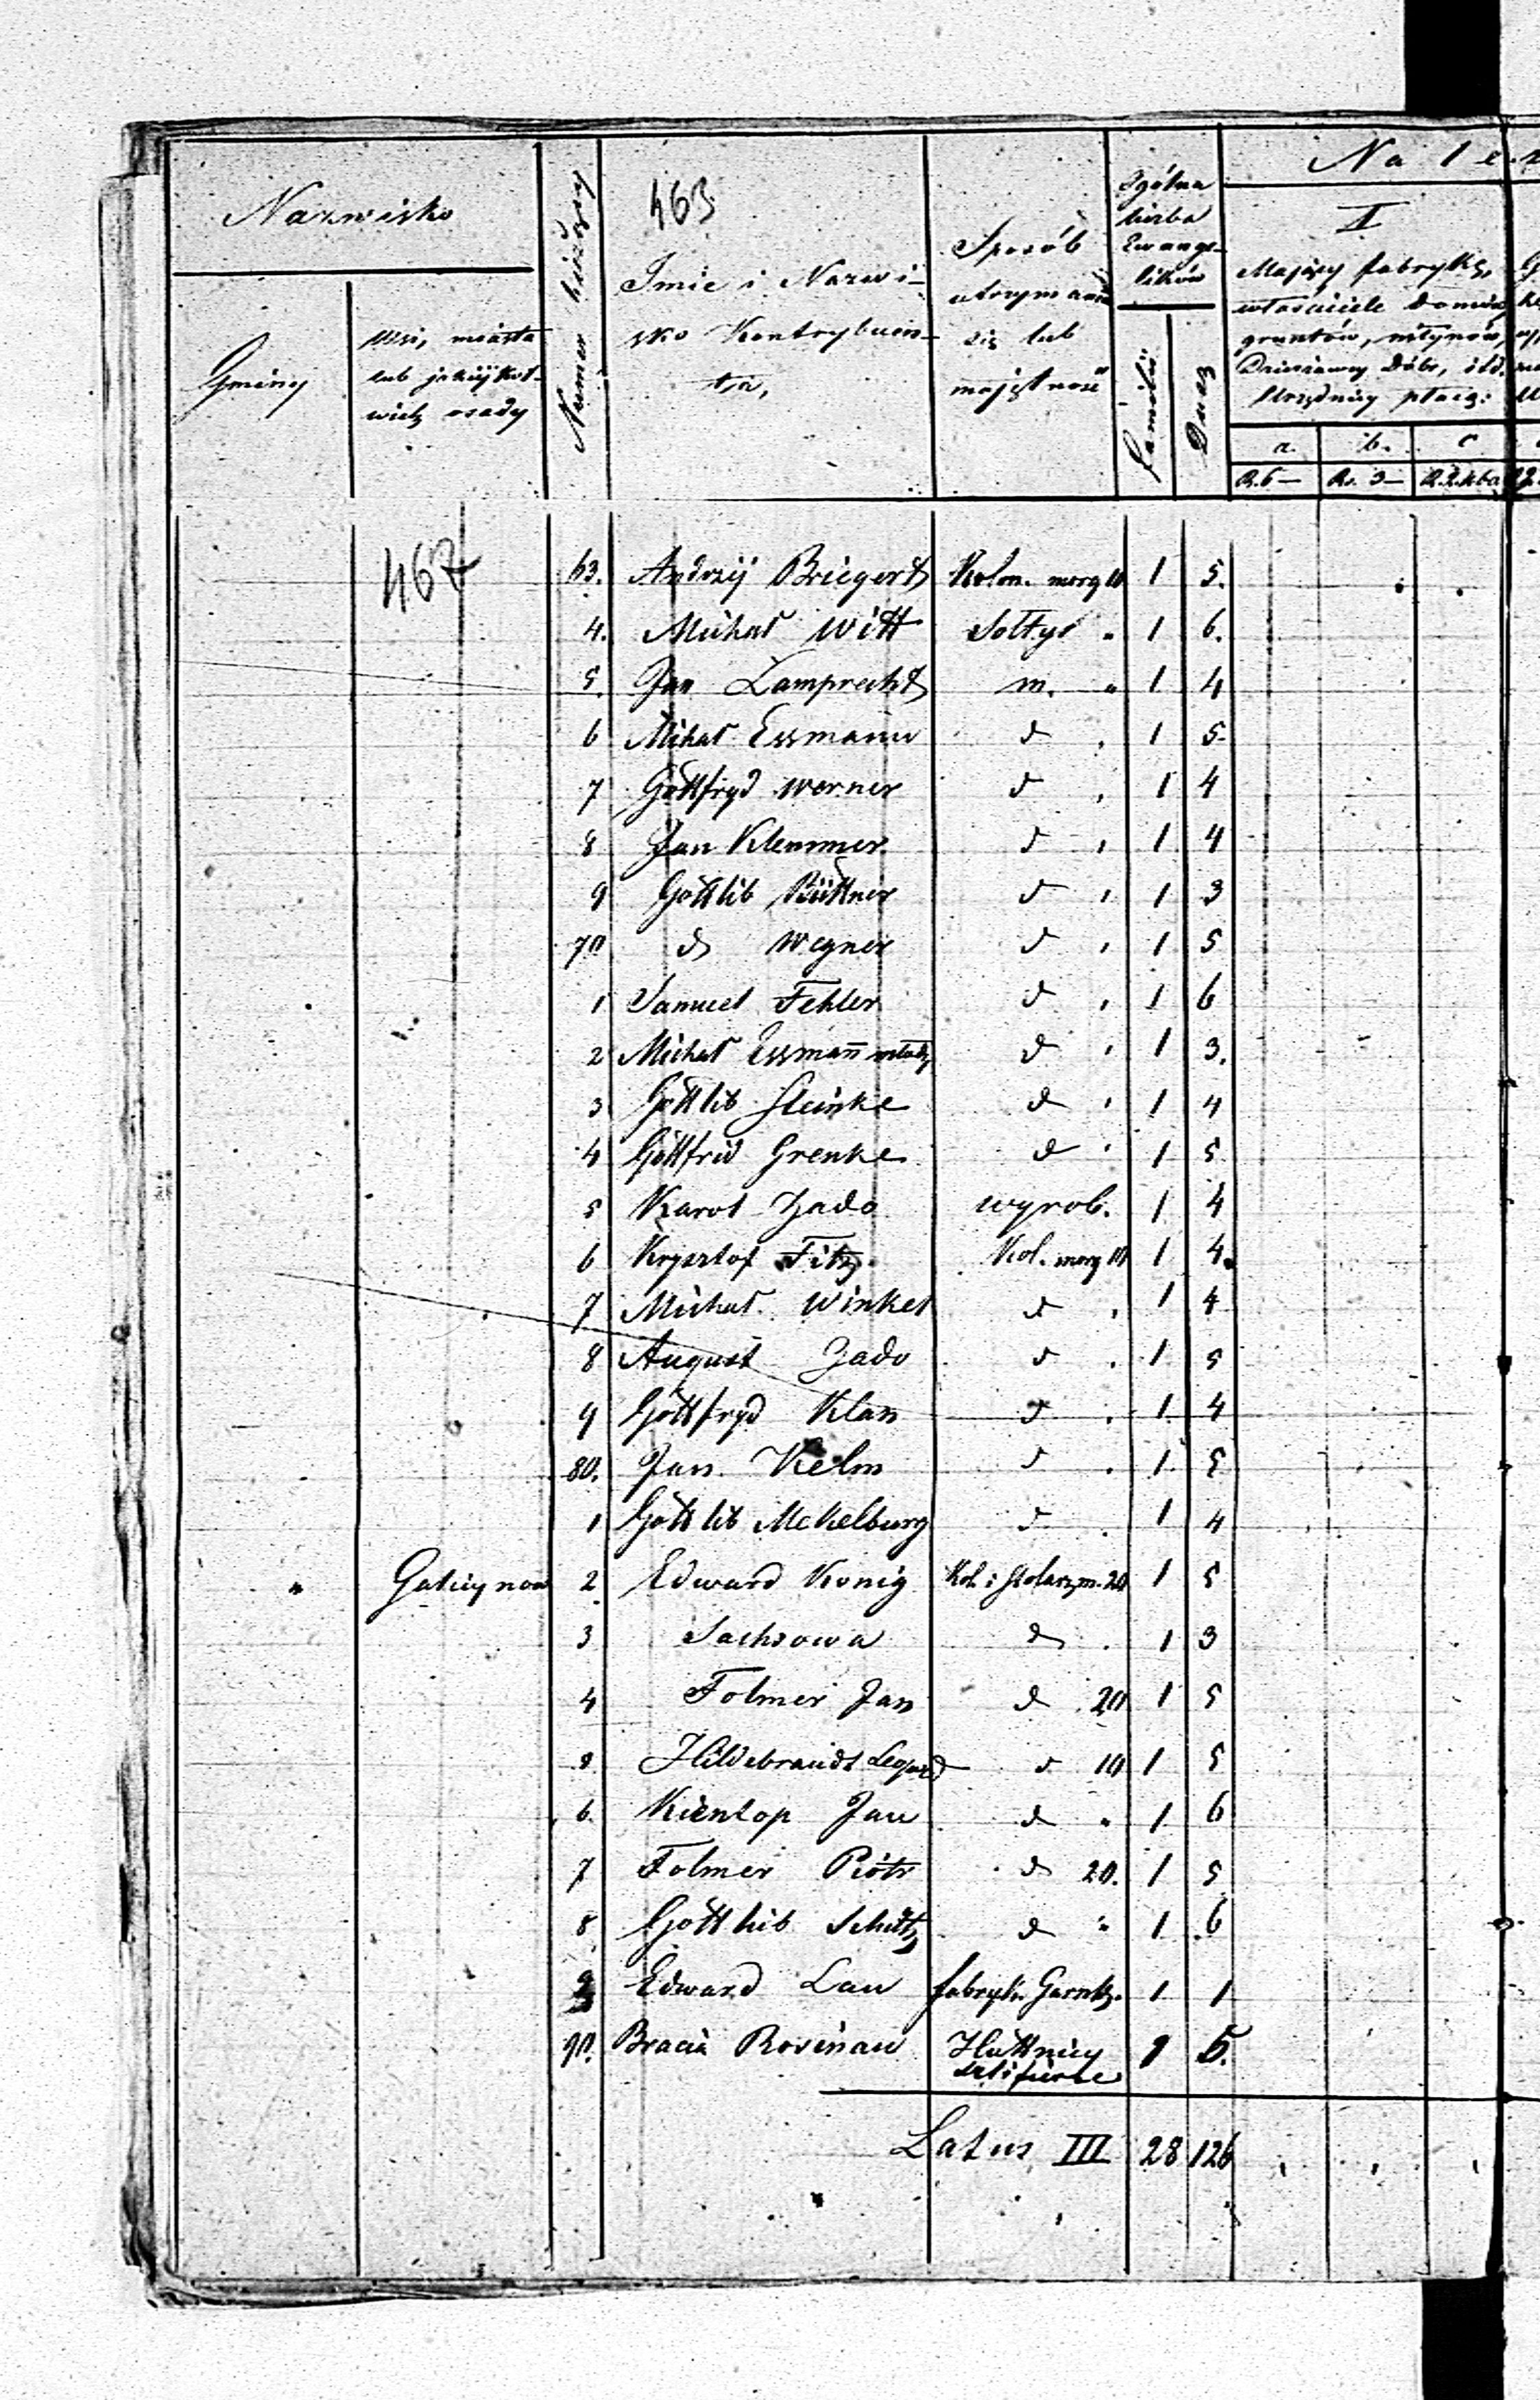 Nazwisko
Gminy
Wsi, miasta
lub jakiejkol-
wiek osady
Numer bieżący
463
Imie i Nazwi-
sko Kontrybuen-
ta,
Sposób
utrzymania
się lub
majętność
Ogólna
liczba
Ewange-
lików
Familii
Dusz
Na 1
I
Mający fabrykę,
właściciele domów,
gruntów, młynów,
Dzierżawcy Dóbr, itd.
Urzędnicy płacą:
a. b. c
R. 6 — Rs. 3 —
467
63. Andrzej Briegert Kolon. morg 10 1 5.
4. Michał Witt Sołtys " 1 6.
5. Jan Lamprecht m. " 1 4
6 Michał Essmann d 1 5
7 Gottfryd Werner d 1 4
8 Jan Klemmer d 1 4
9 Gottlib Büttner d 1 3
70 d Wegner d 1 5
1 Samuel Fehler d 1 6
2 Michał Essmañ młod. d 1 3.
3 Gottlib Steinke d 1 4
4 Gottfrid Grenke d 1 5
5 Karol Zado wyrob. 1 4
6 Krysztof Fitz Kol. morg 10 1 4
7 Michał Winkel d 1 4
8 August Zado d 1 5
9 Gottfryd Klan d 1 4
80. Jan Kelm d 1 5
1 Gottlib Mekelburg d 1 4
" 2 Edward Konig Kol. i stolarz m. 20 1 5
3 Sachsowa d 1 3
4 Folmer Jan d 20 1 5
5 Hildebrandt d 10 1 5
6. Kientop Jan d " 1 6
7 Folmer Piotr d 20. 1 5
8 Gottlieb Schütz d " 1 6
9 Edward Lau fabryk. Garnk. 1 1
90. Bracia Rosinau Huttnicy 1 5.
szlifierze
Latus III 28 126